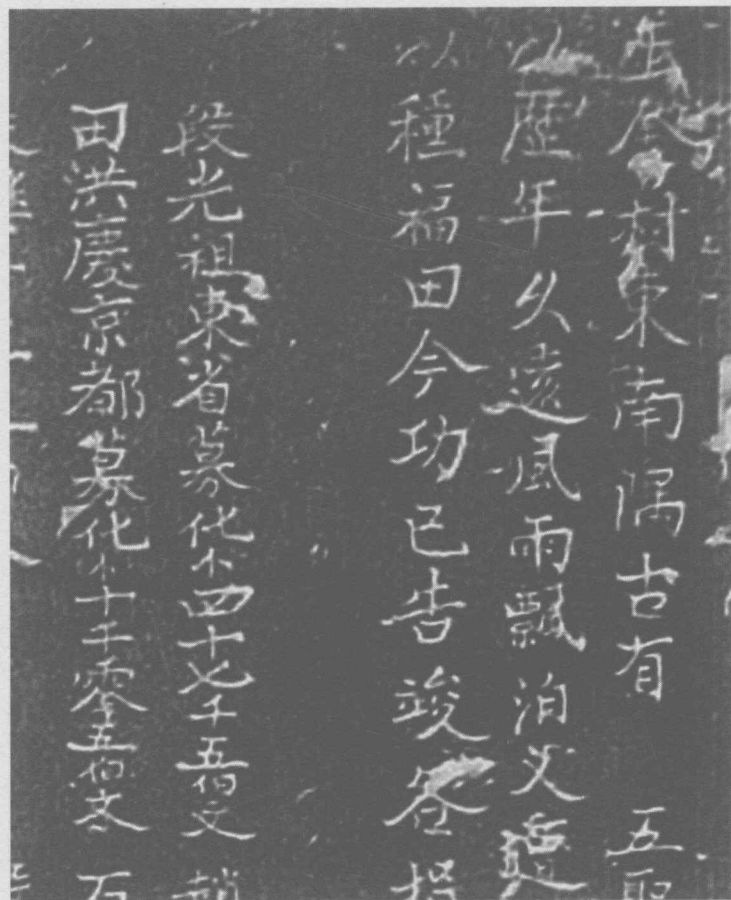 村東南隅古有 五
歷年久遠風雨飄泊又遭
以種福田今功已告竣
段光祖東省募化小四十七千五伯文 趙
田洪慶京都募化小十千零五伯文 石